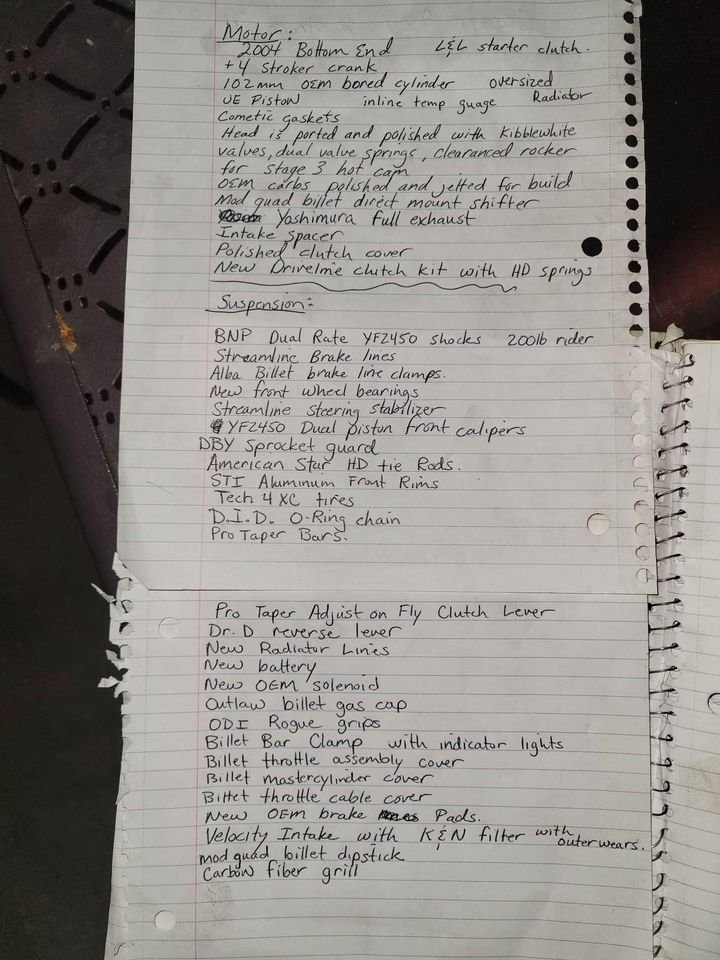 Motor:
2004 Bottom End L&L starter clutch.
+4 Stroker crank
102mm OEM bored cylinder oversized Radiator
JE Piston inline temp guage
Cometic gaskets
Head is ported and polished with Kibblewhite
valves, dual valve springs, clearanced rocker
for stage 3 hot cam
OEM carbs polished and jetted for build
Mod quad billet direct mount shifter
Yoshimura full exhaust
Intake spacer
Polished clutch cover
New Driveline clutch kit with HD springs
Suspension:
BNP Dual Rate YFZ450 shocks 200lb rider
Streamline Brake lines
Alba Billet brake line clamps.
New front wheel bearings
Streamline steering stabilizer
YFZ450 Dual piston front calipers
DBY Sprocket guard
American Star HD tie Rods.
STI Aluminum Front Rims
Tech 4 XC tires
D.I.D. O-Ring chain
Pro Taper Bars.
Pro Taper Adjust on Fly Clutch Lever
Dr. D reverse lever
New Radiator Lines
New battery
New OEM solenoid
Outlaw billet gas cap
ODI Rogue grips
Billet Bar Clamp with indicator lights
Billet throttle assembly cover
Billet mastercylinder cover
Billet throttle cable cover
New OEM brake Pads.
Velocity Intake with K&N filter with outerwears.
mod quad billet dipstick
Carbon fiber grill